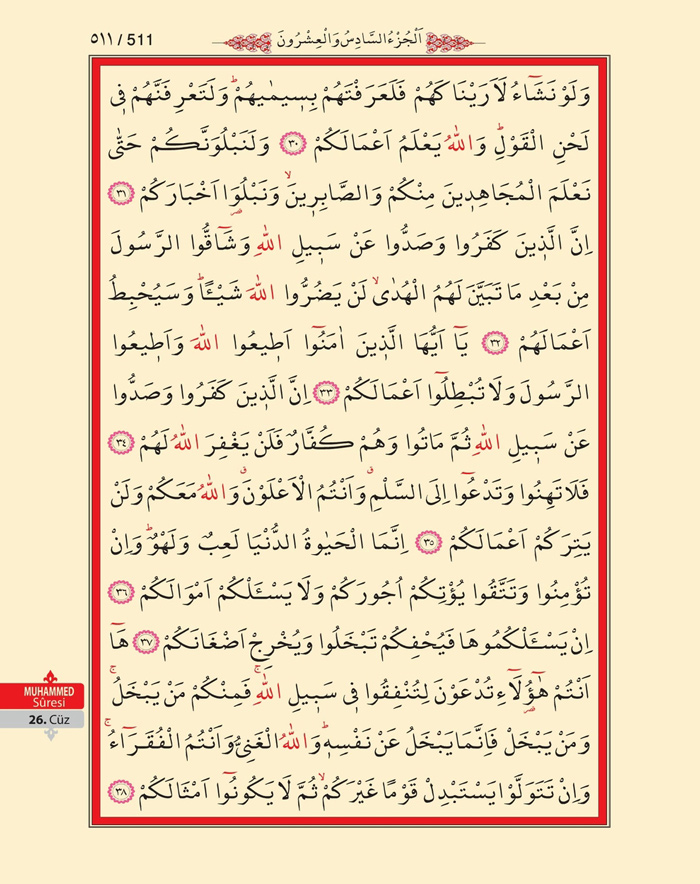 ٥١١ / 511
اَلْجُزْءُ السَّادِسُ وَالْعِشْرُونَ
وَلَوْ نَشَٓاءُ لَاَرَيْنَاكَهُمْ فَلَعَرَفْتَهُمْ بِس۪يمٰيهُمْۜ وَلَتَعْرِفَنَّهُمْ ف۪ي
لَحْنِ الْقَوْلِۜ وَاللّٰهُ يَعْلَمُ اَعْمَالَكُمْ ﴿٣٠﴾ وَلَنَبْلُوَنَّكُمْ حَتّٰى
نَعْلَمَ الْمُجَاهِد۪ينَ مِنْكُمْ وَالصَّابِر۪ينَۙ وَنَبْلُوَ۬ا اَخْبَارَكُمْ ﴿٣١﴾
اِنَّ الَّذ۪ينَ كَفَرُوا وَصَدُّوا عَنْ سَب۪يلِ اللّٰهِ وَشَٓاقُّوا الرَّسُولَ
مِنْ بَعْدِ مَا تَبَيَّنَ لَهُمُ الْهُدٰىۙ لَنْ يَضُرُّوا اللّٰهَ شَيْـٔاًۜ وَسَيُحْبِطُ
اَعْمَالَهُمْ ﴿٣٢﴾ يَٓا اَيُّهَا الَّذ۪ينَ اٰمَنُٓوا اَط۪يعُوا اللّٰهَ وَاَط۪يعُوا
الرَّسُولَ وَلَا تُبْطِلُٓوا اَعْمَالَكُمْ ﴿٣٣﴾ اِنَّ الَّذ۪ينَ كَفَرُوا وَصَدُّوا
عَنْ سَب۪يلِ اللّٰهِ ثُمَّ مَاتُوا وَهُمْ كُفَّارٌ فَلَنْ يَغْفِرَ اللّٰهُ لَهُمْ ﴿٣٤﴾
فَلَا تَهِنُوا وَتَدْعُٓوا اِلَى السَّلْمِۗ وَاَنْتُمُ الْاَعْلَوْنَۗ وَاللّٰهُ مَعَكُمْ وَلَنْ
يَتِرَكُمْ اَعْمَالَكُمْ ﴿٣٥﴾ اِنَّمَا الْحَيٰوةُ الدُّنْيَا لَعِبٌ وَلَهْوٌۜ وَاِنْ
تُؤْمِنُوا وَتَتَّقُوا يُؤْتِكُمْ اُجُورَكُمْ وَلَا يَسْـَٔلْكُمْ اَمْوَالَكُمْ ﴿٣٦﴾
اِنْ يَسْـَٔلْكُمُوهَا فَيُحْفِكُمْ تَبْخَلُوا وَيُخْرِجْ اَضْغَانَكُمْ ﴿٣٧﴾ هَٓا
اَنْتُمْ هٰٓؤُ۬لَٓاءِ تُدْعَوْنَ لِتُنْفِقُوا ف۪ي سَب۪يلِ اللّٰهِۚ فَمِنْكُمْ مَنْ يَبْخَلُۚ
وَمَنْ يَبْخَلْ فَاِنَّمَا يَبْخَلُ عَنْ نَفْسِه۪ۜ وَاللّٰهُ الْغَنِيُّ وَاَنْتُمُ الْفُقَرَٓاءُۚ
وَاِنْ تَتَوَلَّوْا يَسْتَبْدِلْ قَوْماً غَيْرَكُمْۙ ثُمَّ لَا يَكُونُٓوا اَمْثَالَكُمْ ﴿٣٨﴾
MUHAMMED
Sûresi
26. Cüz